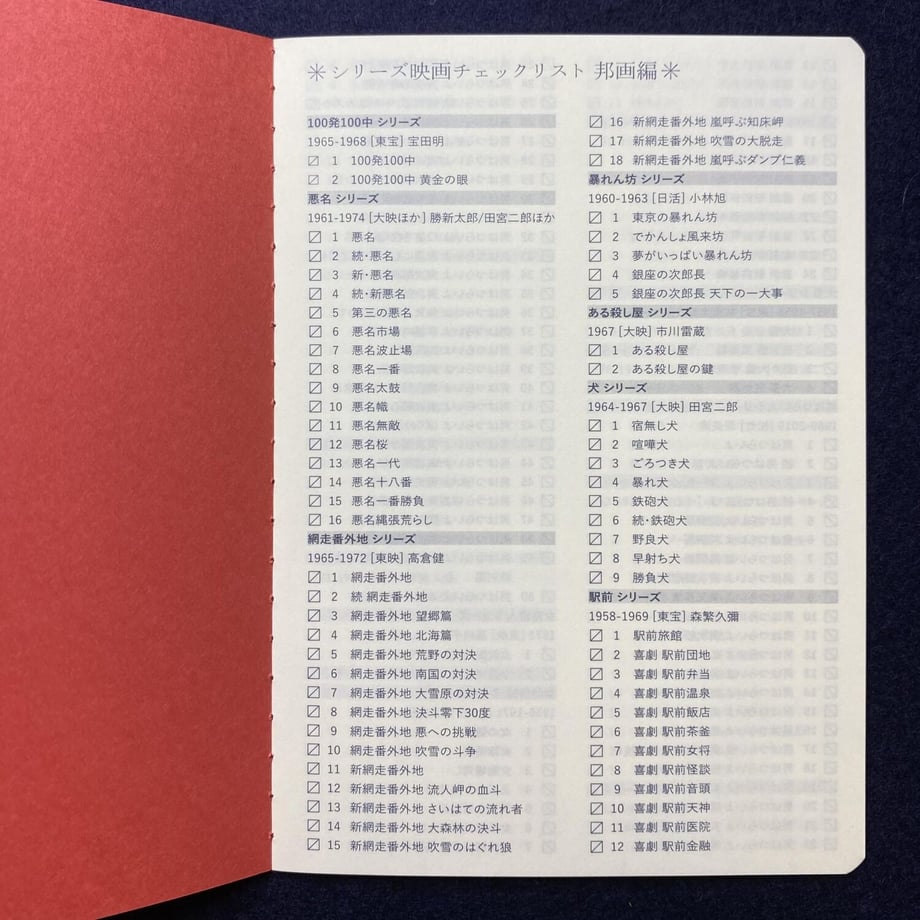 ＊シリーズ映画チェックリスト 邦画編＊
100発100中 シリーズ
1965-1968 [東宝] 宝田明
1 100発100中
2 100発100中 黄金の眼
悪名 シリーズ
1961-1974 [大映ほか] 勝新太郎/田宮二郎ほか
1 悪名
2 続・悪名
3 新・悪名
4 続・新悪名
5 第三の悪名
6 悪名市場
7 悪名波止場
8 悪名一番
9 悪名太鼓
10 悪名幟
11 悪名無敵
12 悪名桜
13 悪名一代
14 悪名十八番
15 悪名一番勝負
16 悪名縄張荒らし
網走番外地 シリーズ
1965-1972 [東映] 高倉健
1 網走番外地
2 続 網走番外地
3 網走番外地 望郷篇
4 網走番外地 北海篇
5 網走番外地 荒野の対決
6 網走番外地 南国の対決
7 網走番外地 大雪原の対決
8 網走番外地 決斗零下30度
9 網走番外地 悪への挑戦
10 網走番外地 吹雪の斗争
11 新網走番外地
12 新網走番外地 流人岬の血斗
13 新網走番外地 さいはての流れ者
14 新網走番外地 大森林の決斗
15 新網走番外地 吹雪のはぐれ狼
16 新網走番外地 嵐呼ぶ知床岬
17 新網走番外地 吹雪の大脱走
18 新網走番外地 嵐呼ぶダンプ仁義
暴れん坊 シリーズ
1960-1963 [日活] 小林旭
1 東京の暴れん坊
2 でかんしょ風来坊
3 夢がいっぱい暴れん坊
4 銀座の次郎長
5 銀座の次郎長 天下の一大事
ある殺し屋 シリーズ
1967 [大映] 市川雷蔵
1 ある殺し屋
2 ある殺し屋の鍵
犬 シリーズ
1964-1967 [大映] 田宮二郎
1 宿無し犬
2 喧嘩犬
3 ごろつき犬
4 暴れ犬
5 鉄砲犬
6 続・鉄砲犬
7 野良犬
8 早射ち犬
9 勝負犬
駅前 シリーズ
1958-1969 [東宝] 森繁久彌
1 駅前旅館
2 喜劇 駅前団地
3 喜劇 駅前弁当
4 喜劇 駅前温泉
5 喜劇 駅前飯店
6 喜劇 駅前茶釜
7 喜劇 駅前女将
8 喜劇 駅前怪談
9 喜劇 駅前音頭
10 喜劇 駅前天神
11 喜劇 駅前医院
12 喜劇 駅前金融